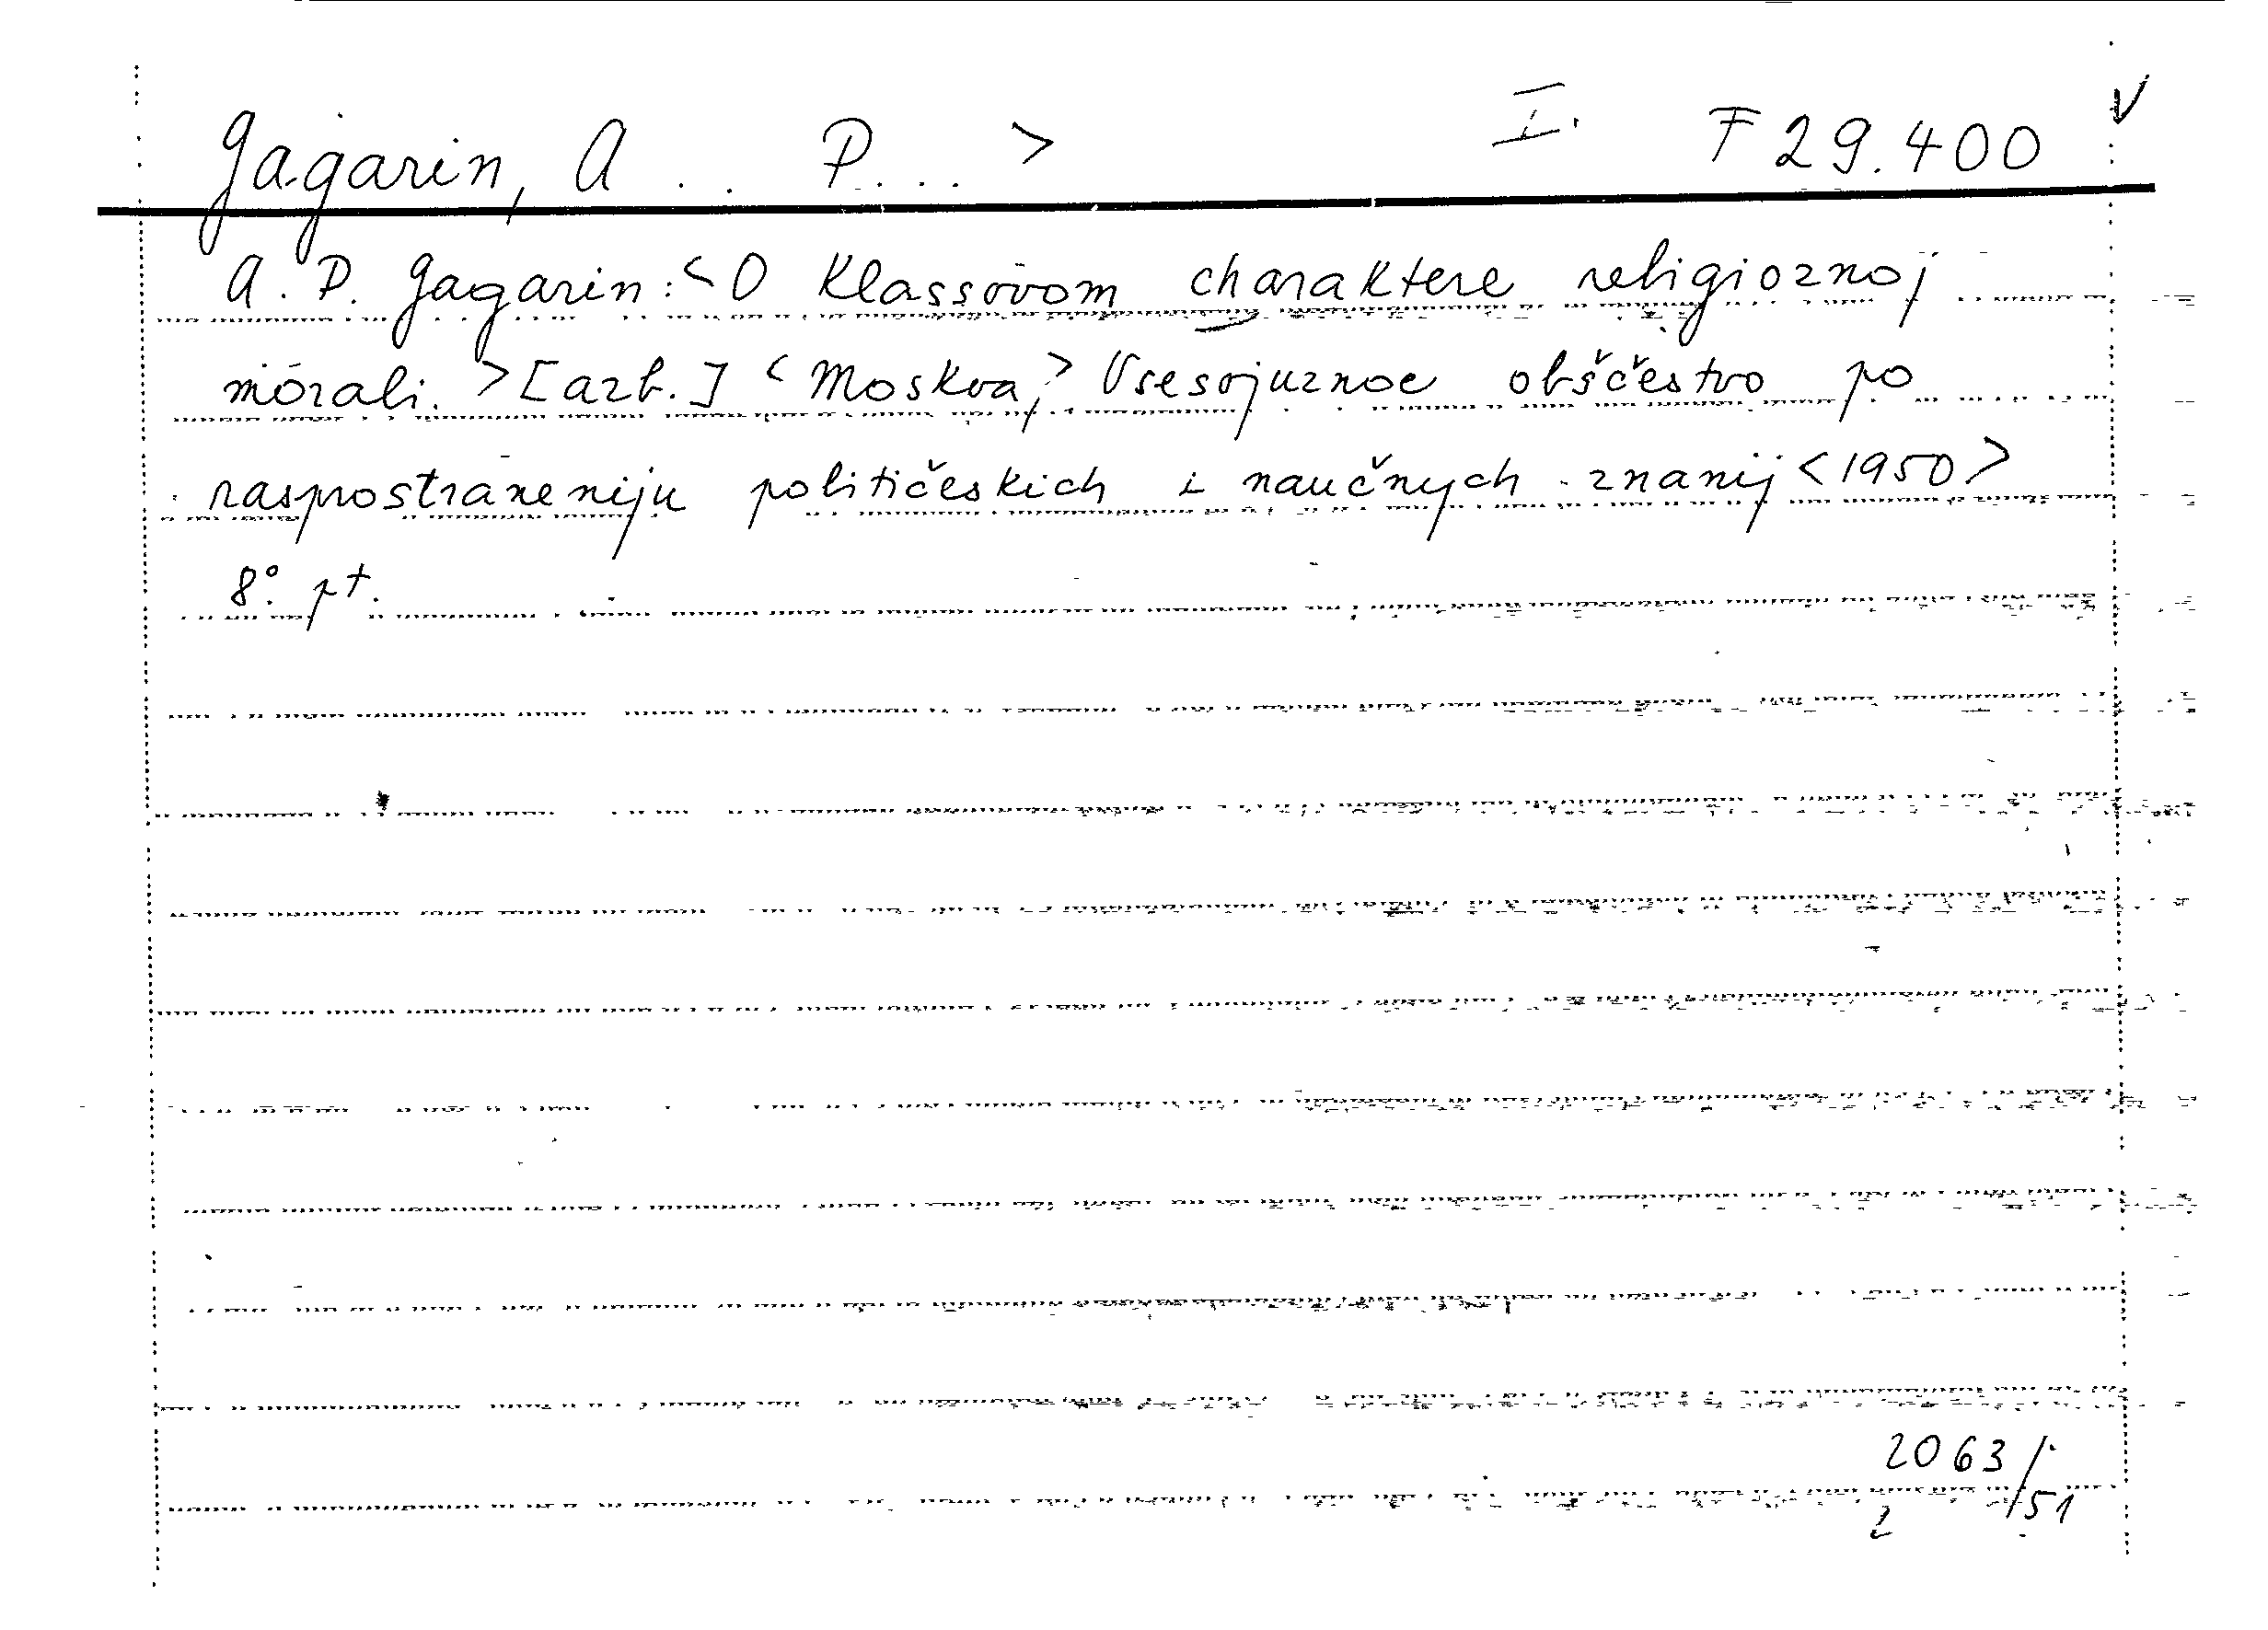 Gagarin, A . . P. . . . > I. F 29.400 V
A. P. Gagarin: < O klassovom charaktere religioznoj
morali. > [azb.] < Moskva, > Vsesojuznoe obščestvo po
rasprostraneniju političeskich i naučnych znanij < 1950 >
8°. pt.
2063/51
2